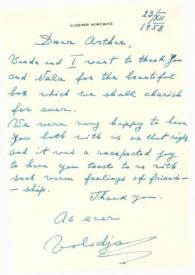 VLADIMIR HOROWITZ
23/XII
1958
Dear Arthur,
Wanda and I want to thank you
and Nela for the beautiful
box which we shall cherish
for ever.
We were very happy to have
you both with us on that night
and it was a unexpected joy
to have you toast to us with
such warm feelings of friend-
ship.
Thank you.
As ever
Volodja